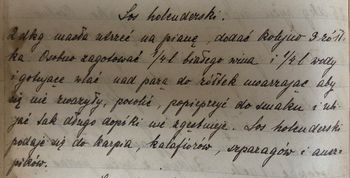 Sos holenderski.
2 dkg masła utrzeć na pianę, dodać kolejno 3 żółt-
ka. Osobno zagotować 1/4 l białego wina i 1/4 l wody
i gotujące wlać nad parą do żółtek uważając aby
się nie zwarzyły, posolić, popieprzyć do smaku i ubi-
jać tak długo dopóki nie zgęstnieje. Sos holenderski
podaje się do karpia, kalafiorów, szparagów i ausz-
pików.